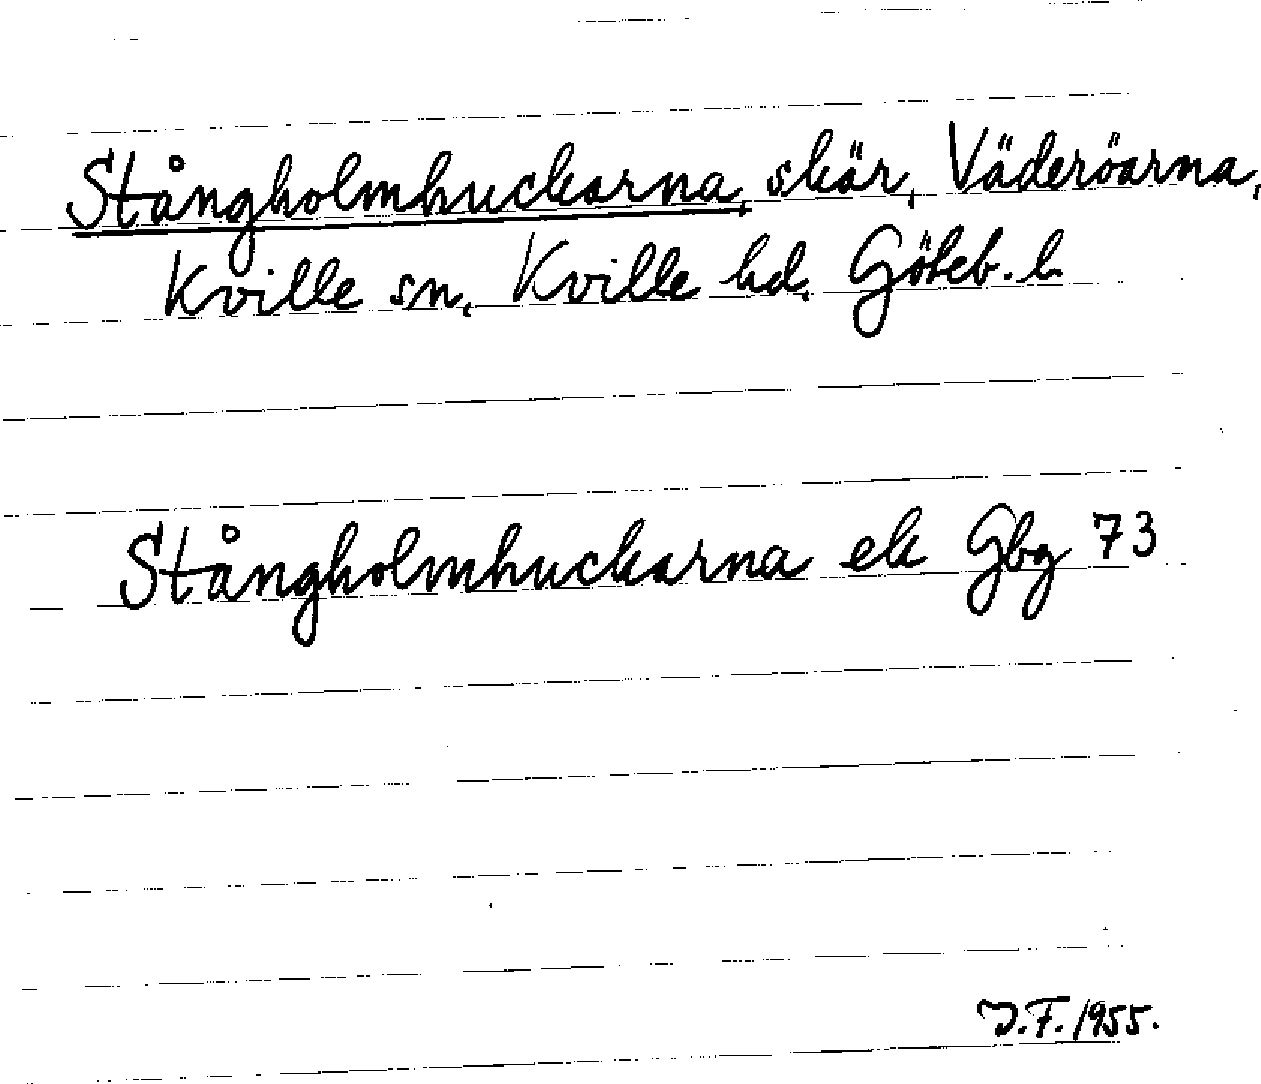 Stångholmhuckarna, skär, Väderöarna,
Kville sn, Kville hd, Göteb. l
Stångholmhuckarna ek Gbg 73
J.F. 1955.